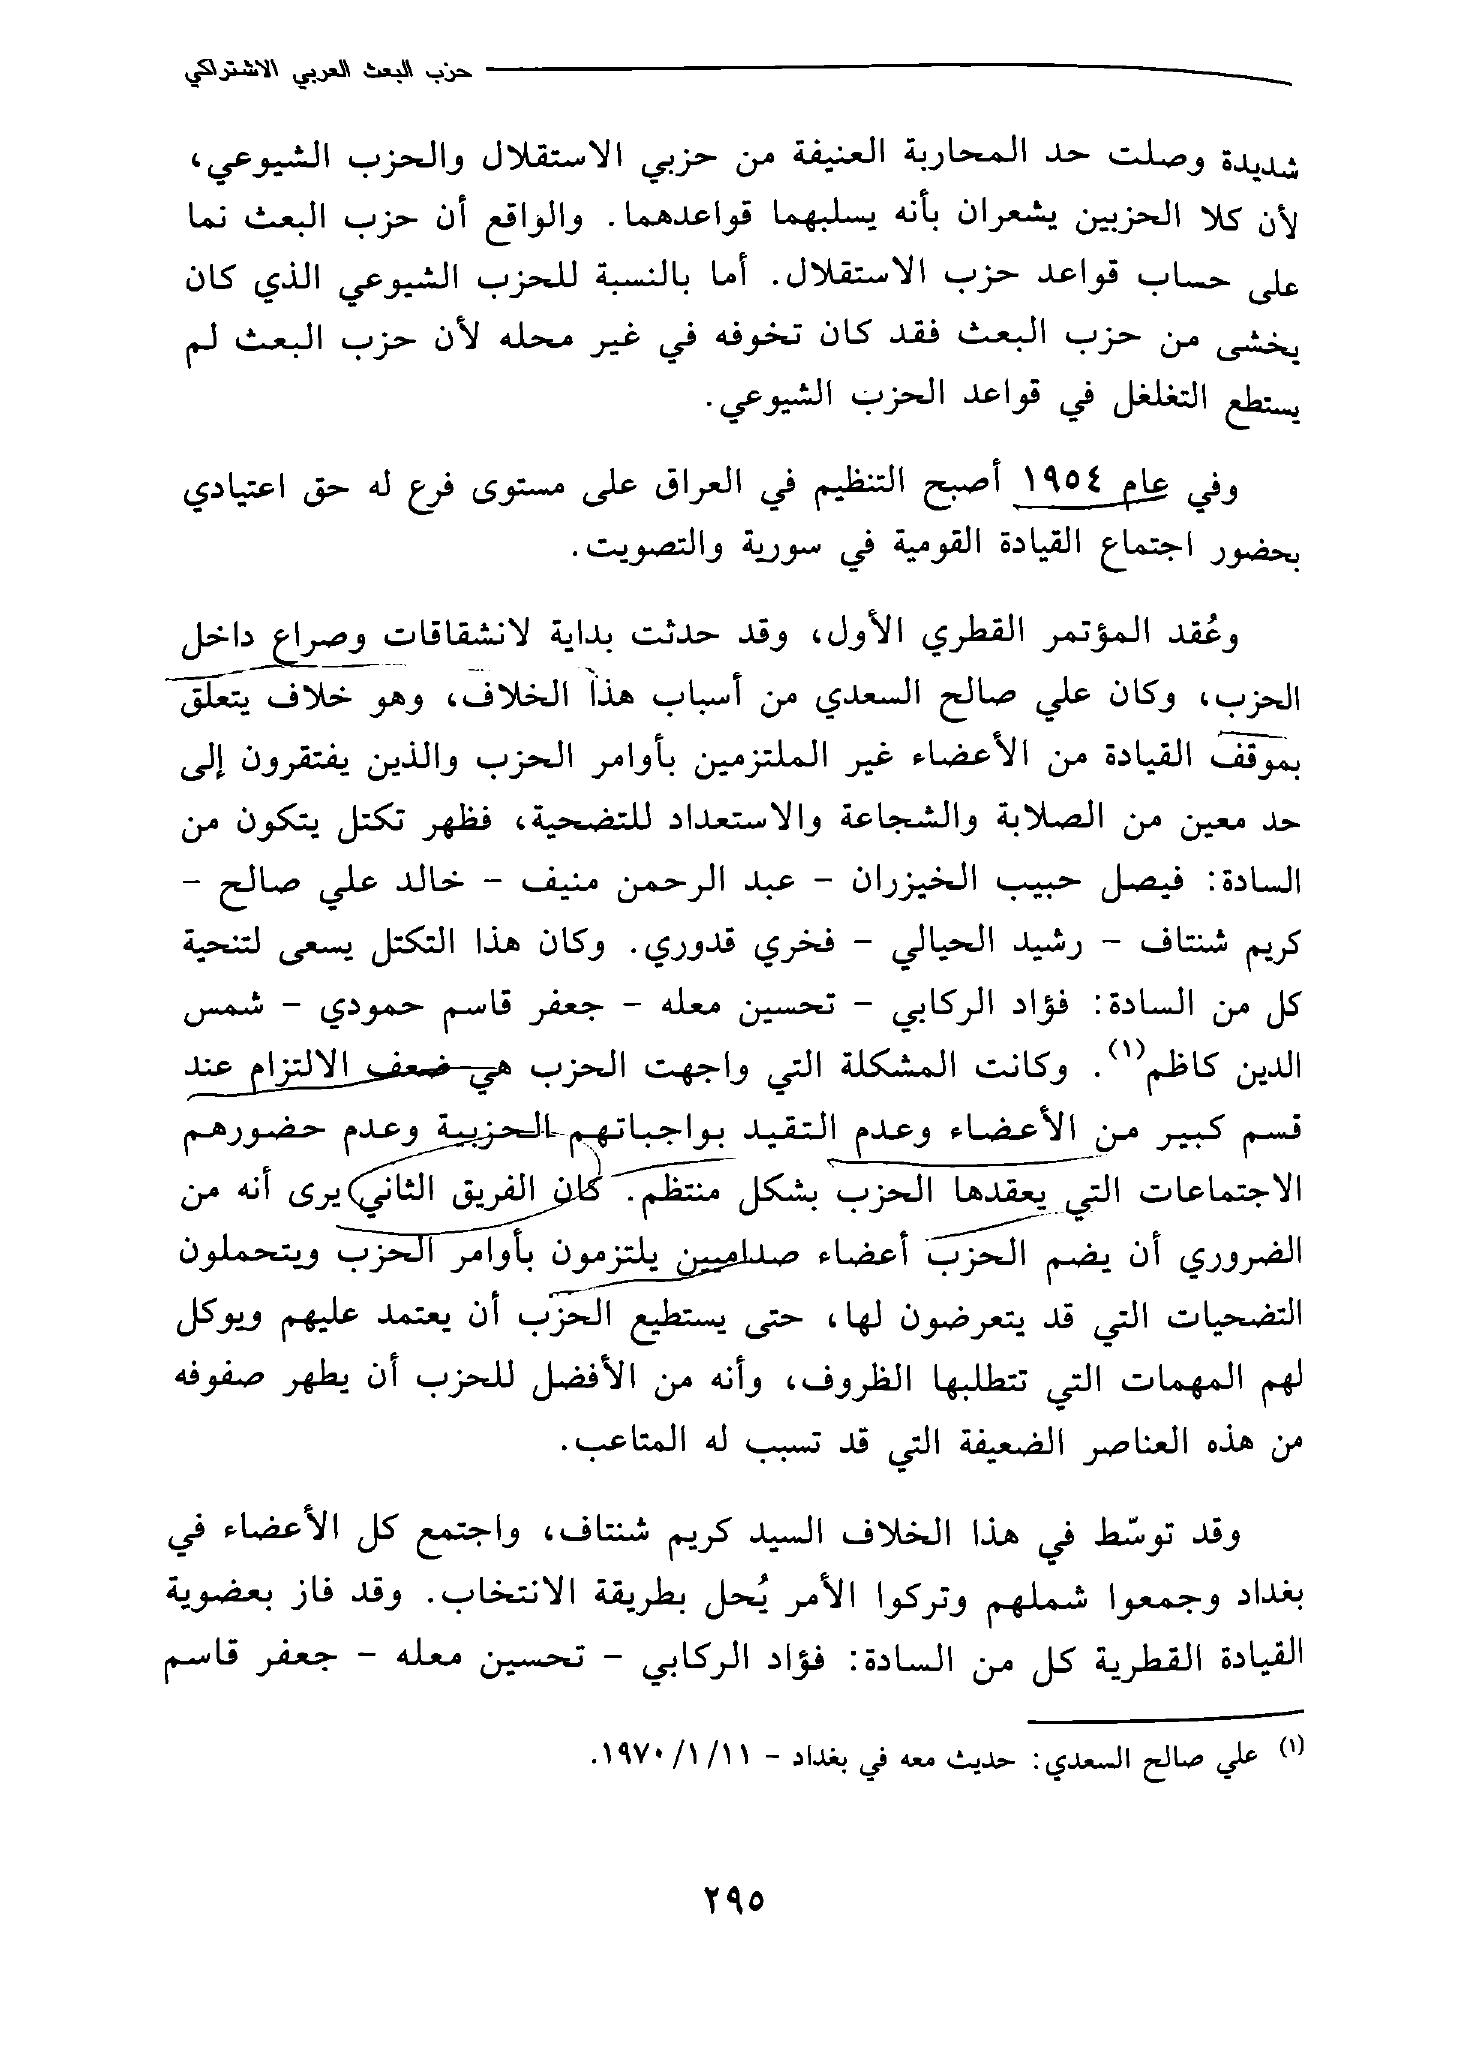 حزب البعث العربي الاشتراكي
شديدة وصلت حد المحاربة العنيفة من حزبي الاستقلال والحزب الشيوعي،
لأن كلا الحزبين يشعران بأنه يسلبهما قواعدهما. والواقع أن حزب البعث نما
على حساب قواعد حزب الاستقلال. أما بالنسبة للحزب الشيوعي الذي كان
يخشى من حزب البعث فقد كان تخوفه في غير محله لأن حزب البعث لم
يستطع التغلغل في قواعد الحزب الشيوعي.
وفي عام ١٩٥٤ أصبح التنظيم في العراق على مستوى فرع له حق اعتيادي
بحضور اجتماع القيادة القومية في سورية والتصويت.
وعُقد المؤتمر القطري الأول، وقد حدثت بداية لانشقاقات وصراع داخل
الحزب، وكان علي صالح السعدي من أسباب هذا الخلاف، وهو خلاف يتعلق
بموقف القيادة من الأعضاء غير الملتزمين بأوامر الحزب والذين يفتقرون إلى
حد معين من الصلابة والشجاعة والاستعداد للتضحية، فظهر تكتل يتكون من
السادة: فيصل حبيب الخيزران - عبد الرحمن منيف - خالد علي صالح -
كريم شنتاف - رشيد الحيالي - فخري قدوري. وكان هذا التكتل يسعى لتنحية
كل من السادة: فؤاد الركابي - تحسين معله - جعفر قاسم حمودي - شمس
الدين كاظم(١). وكانت المشكلة التي واجهت الحزب هي ضعف الالتزام عند
قسم كبير من الأعضاء وعدم التقيد بواجباتهم الحزبية وعدم حضورهم
الاجتماعات التي يعقدها الحزب بشكل منتظم. كان الفريق الثاني يرى أنه من
الضروري أن يضم الحزب أعضاء صداميين يلتزمون بأوامر الحزب ويتحملون
التضحيات التي قد يتعرضون لها، حتى يستطيع الحزب أن يعتمد عليهم ويوكل
لهم المهمات التي تتطلبها الظروف، وأنه من الأفضل للحزب أن يطهر صفوفه
من هذه العناصر الضعيفة التي قد تسبب له المتاعب.
وقد توسّط في هذا الخلاف السيد كريم شنتاف، واجتمع كل الأعضاء في
بغداد وجمعوا شملهم وتركوا الأمر يُحل بطريقة الانتخاب. وقد فاز بعضوية
القيادة القطرية كل من السادة: فؤاد الركابي - تحسين معله - جعفر قاسم
(١) علي صالح السعدي: حديث معه في بغداد - ١٩٧٠/١/١١.
٢٩٥